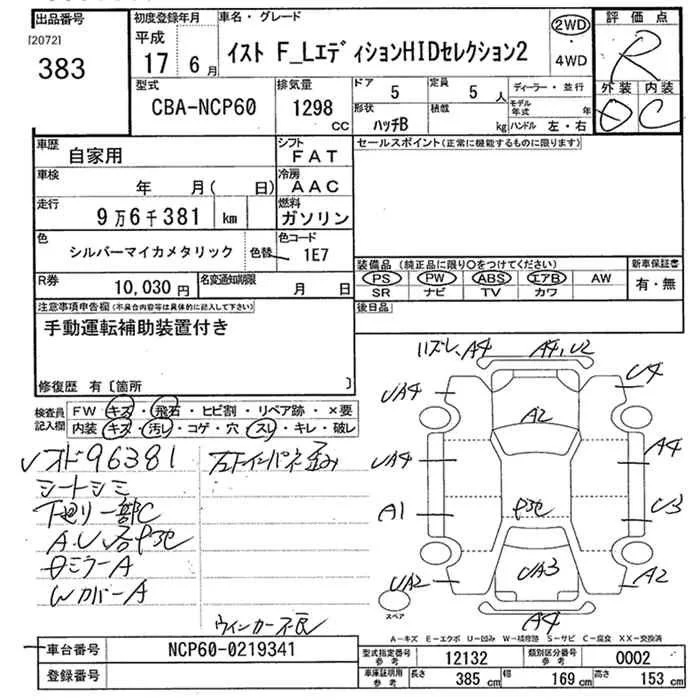 出品番号
[2072]
383
初度登録年月
平成
17 6月
車名・グレード
イスト F_LエディションHIDセレクション2
2WD
・
4WD
評価点
R
外装 内装
D C
型式
CBA-NCP60
排気量
1298
CC
ドア
5
定員
5人
形状
ハッチB
積載
kg
ディーラー・並行
モデル年式 年
ハンドル 左・右
車歴
自家用
シフト
FAT
車検
年 月( 日)
冷房
AAC
走行
9万6千381 km
燃料
ガソリン
色
シルバーマイカメタリック
色替
色コード
1E7
R券
10,030円
名変通知期限
月 日
セールスポイント(正常に機能するものに限ります)
装備品 (純正品に限り○をつけてください)
新車保証書
PS PW ABS エアB AW
有・無
SR ナビ TV カワ
後日品
注意事項申告欄(不具合内容等は具体的に記入して下さい)
手動運転補助装置付き
修復歴 有[箇所 ]
検査員記入欄
FW キズ・飛石・ヒビ割・リペア跡・×要
内装 キズ・汚レ・コゲ・穴・スレ・キレ・破レ
96381
シートシミ
下廻り一部C
ミラーA
WカバーA
ウィンカー不良
ハズレ、A4
A4,U2
UA4
U4
A2
UA4
A4
A1
U3
UA2
UA3
A2
スペア
A4
A-キズ E-エクボ U-凹み W-補修跡 S-サビ C-腐食 XX-交換済
車台番号
NCP60-0219341
登録番号
型式指定番号
参考
12132
類別区分番号
参考
0002
車庫証明用
参考
長さ
385cm
幅
169cm
高さ
153cm